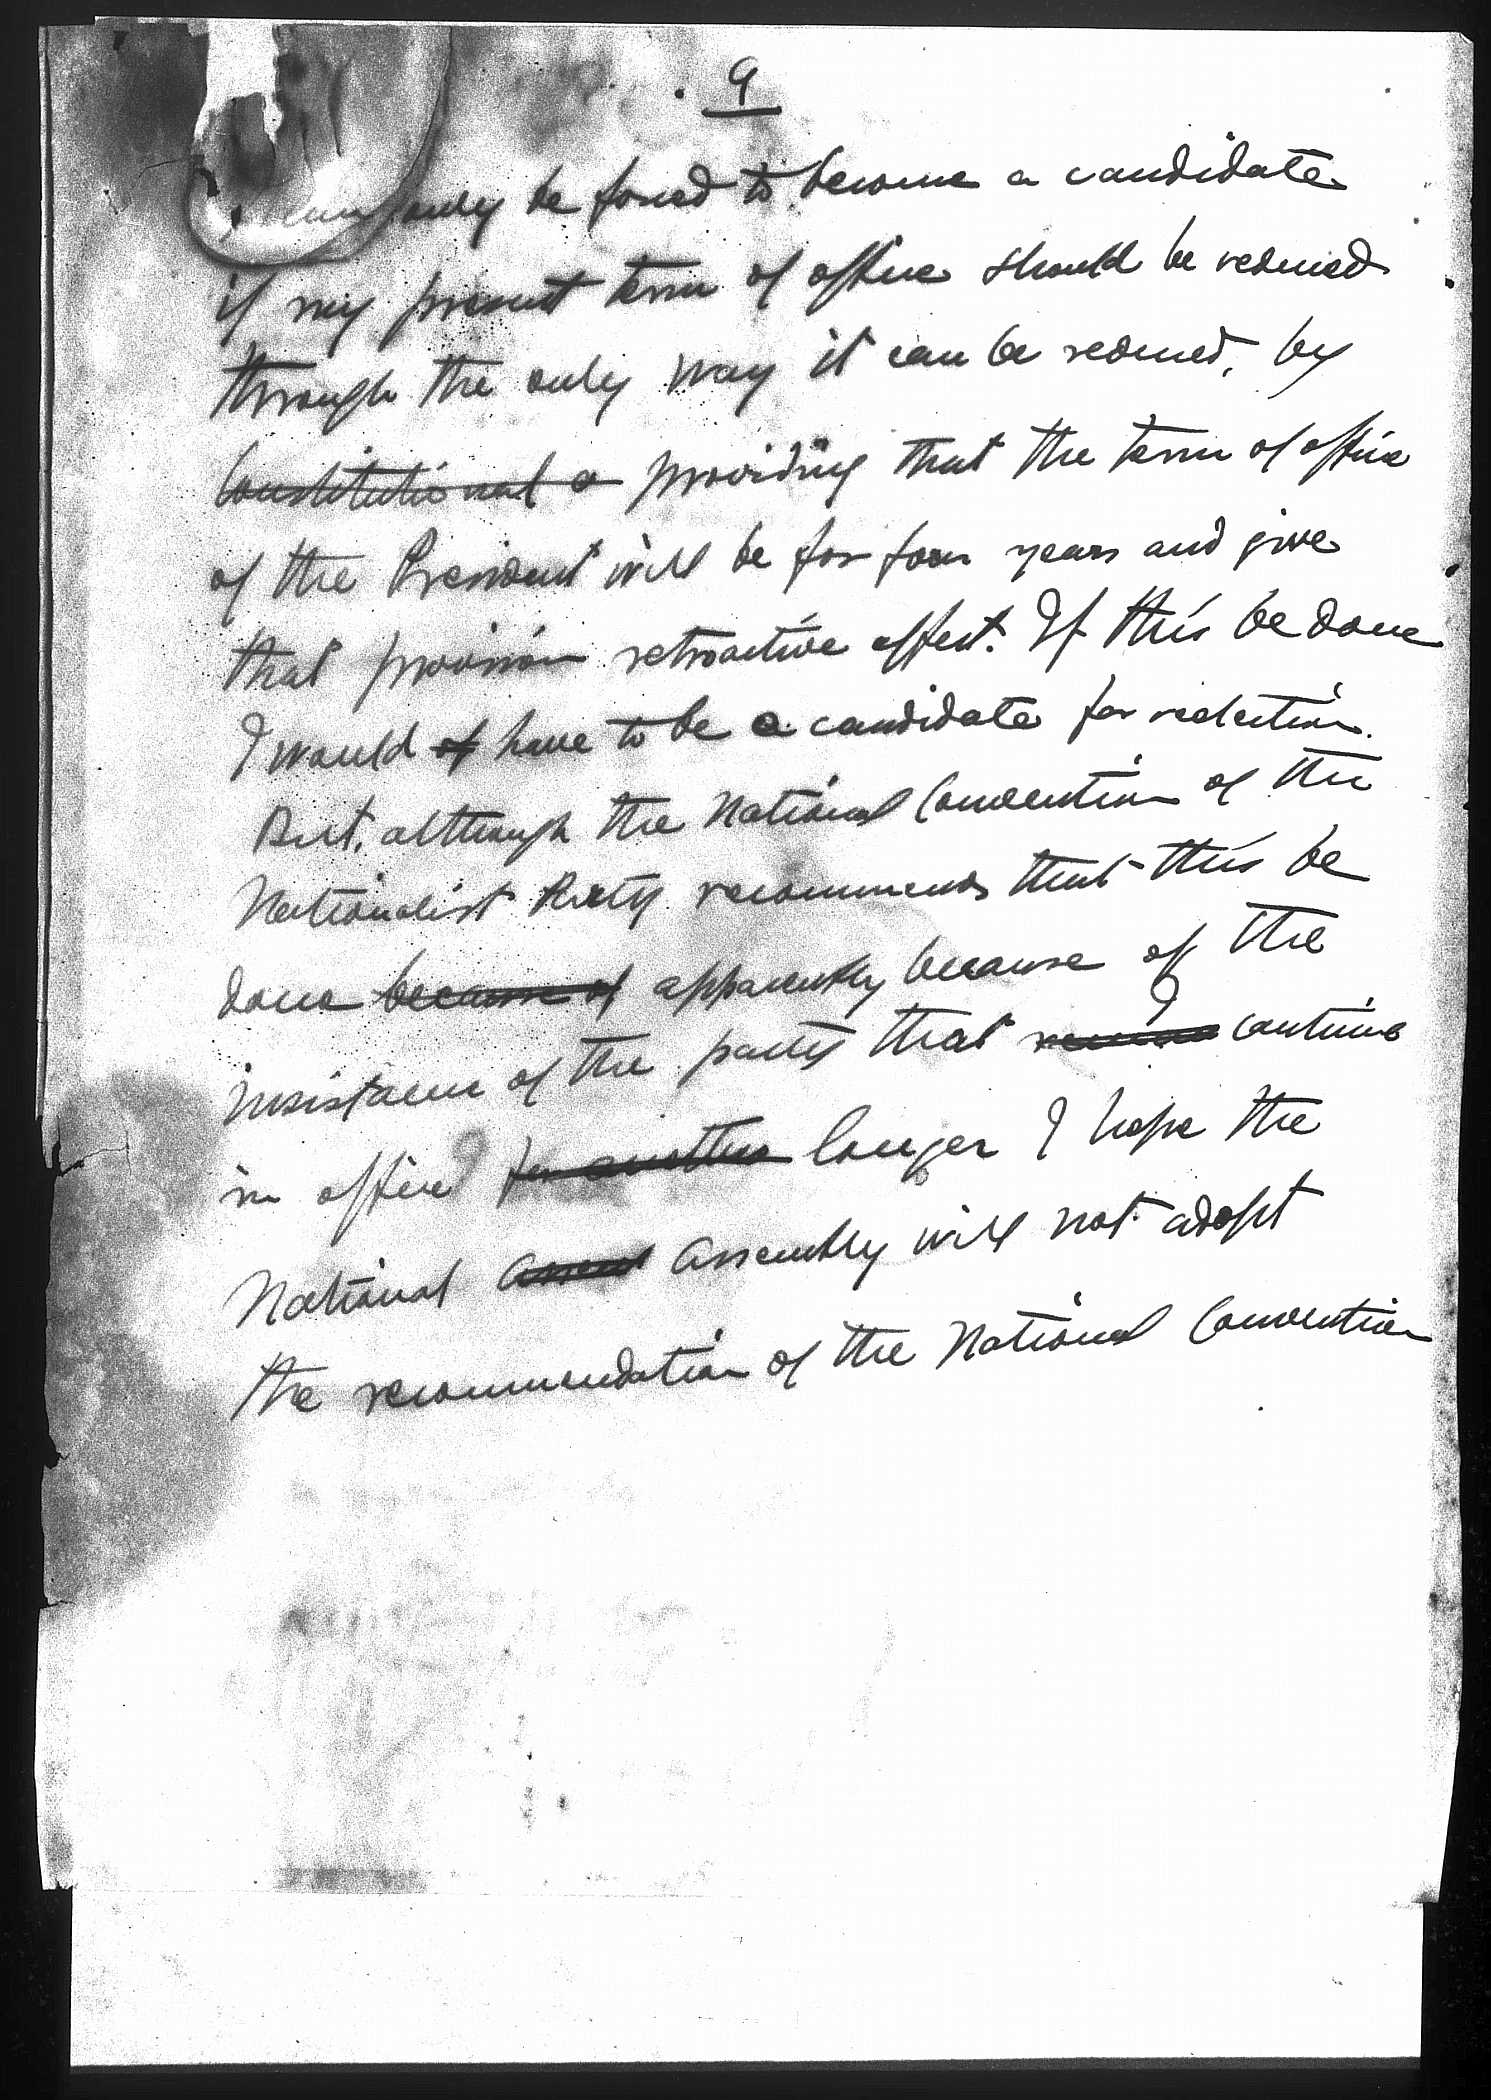 9
I can only be forced to become a candidate
if my present term of office should be reduced
through the only way it can be reduced, by
Constitutional a providing that the term of office
of the President will be for four years and give
that provision retroactive effect. If this be done
I would of have to be a candidate for reelection.
But, although the National Convention of the
Nationalist Party recommends that this be
done because of apparently because of the
insistence of the party that I continue
in office for another longer I hope the
National Assem Assembly will not adopt
the recommendation of the National Convention